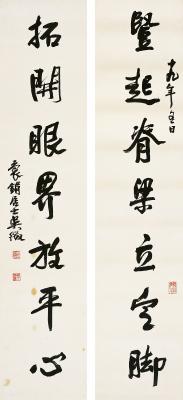 豎起脊梁立定脚
十九年冬日
拓開眼界放平心
袁銷居士吳徵